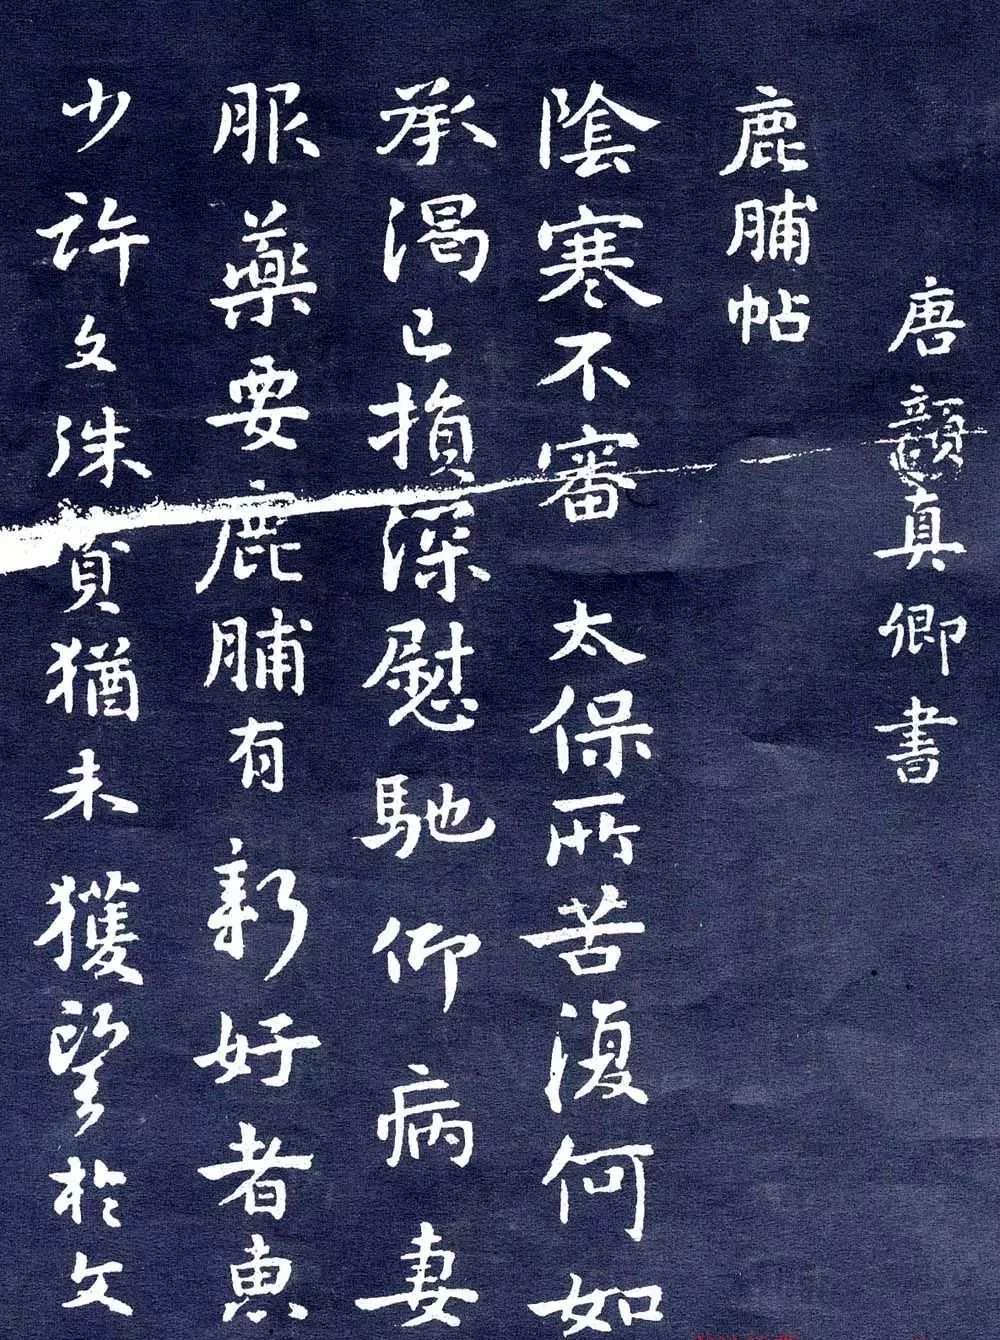 唐顏真卿書
鹿脯帖
陰寒不審太保所苦復何如
承渴已損深慰馳仰病妻
服藥要鹿脯有新好者惠
少許文殊莨猶未獲望於文